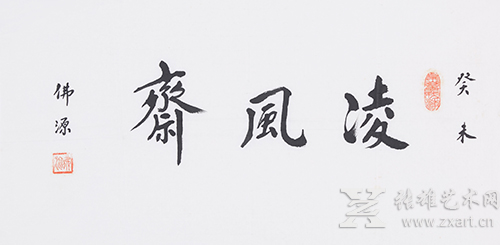 癸未
凌風齋
佛源
雄艺术网
www.zxart.cn